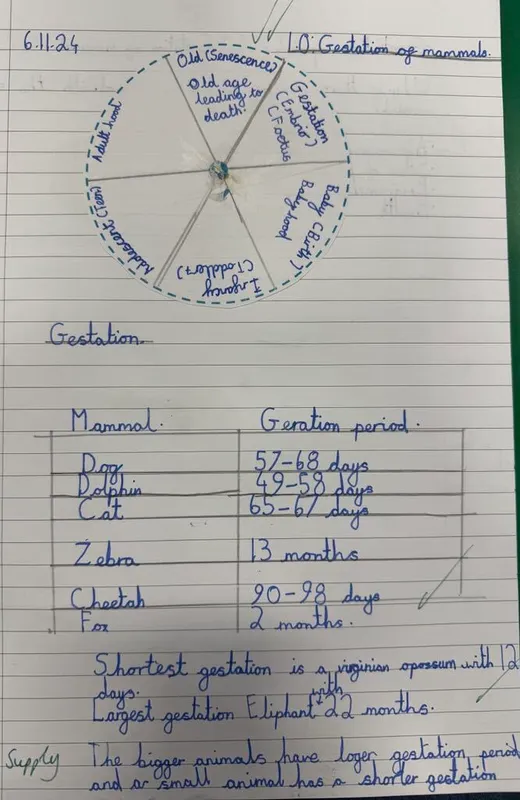 6.11.24
L.O: Gestation of mammals.
Old (Senescence)
Old age
leading to
death.
Gestation
(Embrio)
(Foetus
Baby (Birth)
Babyhood
Infancy
(Toddler)
Adolescent (Teen)
Adult hood
Gestation.
Mammal. Geration period.
Dog 57-68 days
Dolphin 49-58 days
Cat 65-67 days
Zebra 13 months
Cheetah 90-98 days
Fox 2 months.
Shortest gestation is a virginian opossum with 12
days.
with
Largest gestation Eliphant 22 months.
Supply The bigger animals have loger gestation period
and ar small animal has a shorter gestation